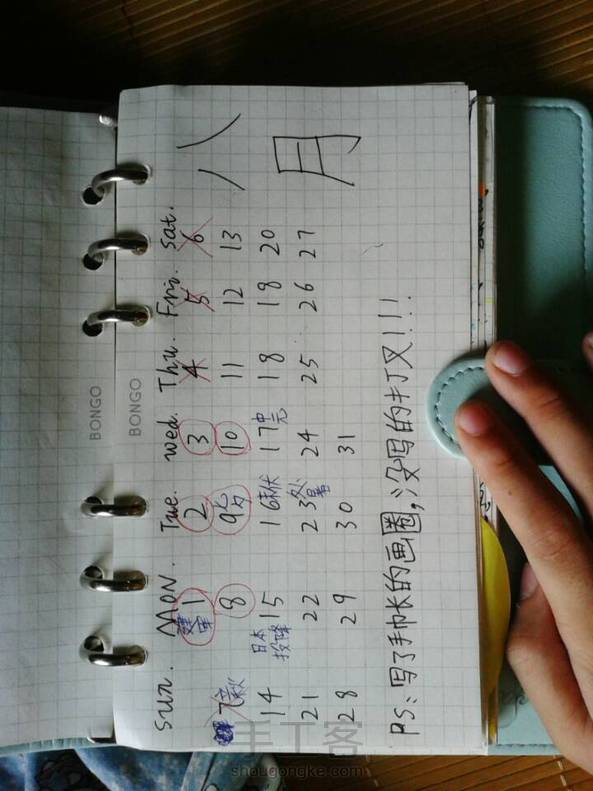 八月
Sun. Mon. Tue. Wed. Thu. Fri. Sat.
1建军 2 3 4 5 6
7立秋 8 9七夕 10 11 12 13
14 15日本投降 16末伏 17中元 18 19 20
21 22 23处暑 24 25 26 27
28 29 30 31
PS:写了手帐的画圈,没写的打叉!!!
BONGO
BONGO
手工客
shougongke.com